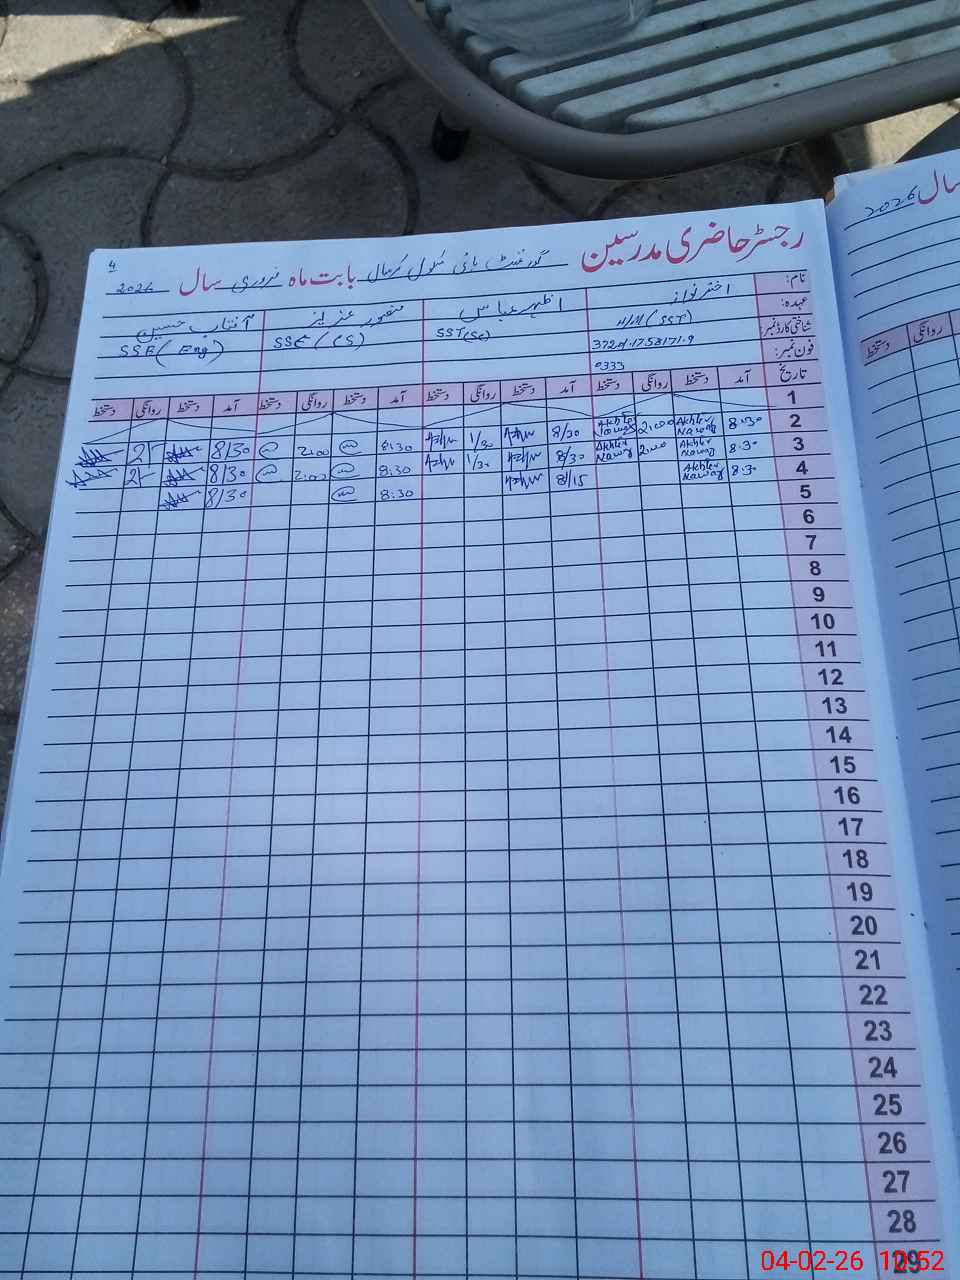 رجسٹر حاضری مدرسین گورنمنٹ ہائی سکول کرسال بابت ماہ فروری سال 2026
4
سال 2026
نام: اختر نواز اظہر عباس منصور عزیز آفتاب حسین
عہدہ: H/M (SST) SST(Sc) SSE (CS) SSE (Eng)
شناختی کارڈ نمبر:
فون نمبر: 0333
تاریخ آمد دستخط روانگی دستخط آمد دستخط روانگی دستخط آمد دستخط روانگی دستخط آمد دستخط روانگی دستخط
روانگی دستخط
1
2 8:30 Akhter Nawaz 2:00 Akhter Nawaz 8/30 1/30 8:30 2:00 8/30 2/-
3 8:30 Akhter Nawaz 2:00 Akhter Nawaz 8/30 1/30 8:30 2:00 8/30 2/-
4 8:30 Akhter Nawaz 8/15 8:30 8/30
5
6
7
8
9
10
11
12
13
14
15
16
17
18
19
20
21
22
23
24
25
26
27
28
29
04-02-26